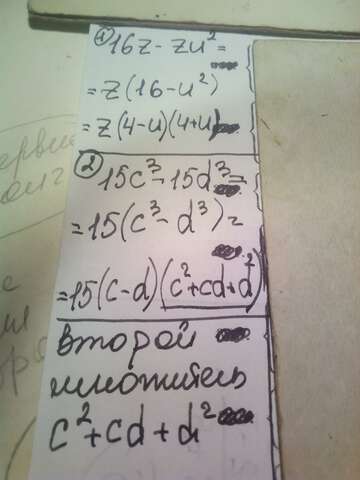 ① 16z - zu² =
= z(16-u²)
= z(4-u)(4+u)
② 15c³-15d³=
= 15(c³-d³)=
=15(c-d)(c²+cd+d²)
второй
множитель
c²+cd+d²